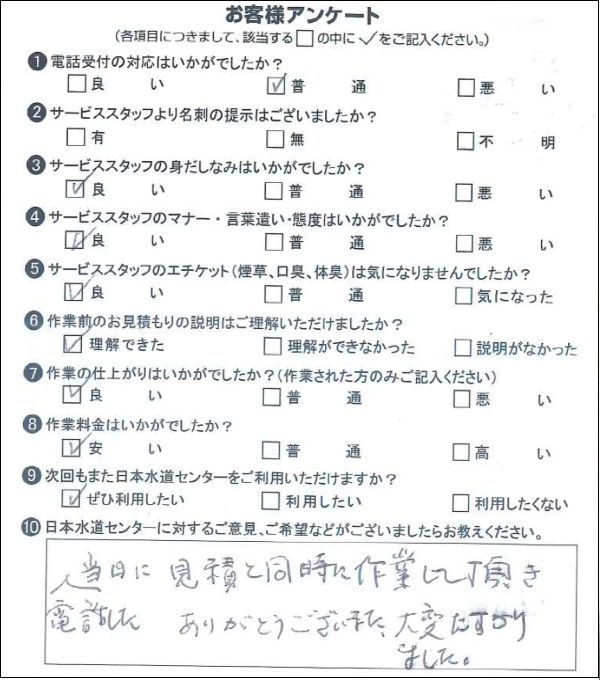 お客様アンケート
(各項目につきまして、該当する□の中に✓をご記入ください。)
❶電話受付の対応はいかがでしたか?
□良 い ☑普 通 □悪 い
❷サービススタッフより名刺の提示はございましたか?
□有 □無 □不 明
❸サービススタッフの身だしなみはいかがでしたか?
☑良 い □普 通 □悪 い
❹サービススタッフのマナー・言葉遣い・態度はいかがでしたか?
☑良 い □普 通 □悪 い
❺サービススタッフのエチケット(煙草、口臭、体臭)は気になりませんでしたか?
☑良 い □普 通 □気になった
❻作業前のお見積もりの説明はご理解いただけましたか?
☑理解できた □理解ができなかった □説明がなかった
❼作業の仕上がりはいかがでしたか?(作業された方のみご記入ください)
☑良 い □普 通 □悪 い
❽作業料金はいかがでしたか?
☑安 い □普 通 □高 い
❾次回もまた日本水道センターをご利用いただけますか?
☑ぜひ利用したい □利用したい □利用したくない
❿日本水道センターに対するご意見、ご希望などがございましたらお教えください。
当日に 見積と同時に作業して頂き
電話した ありがとうございました、大変たすかり
ました。